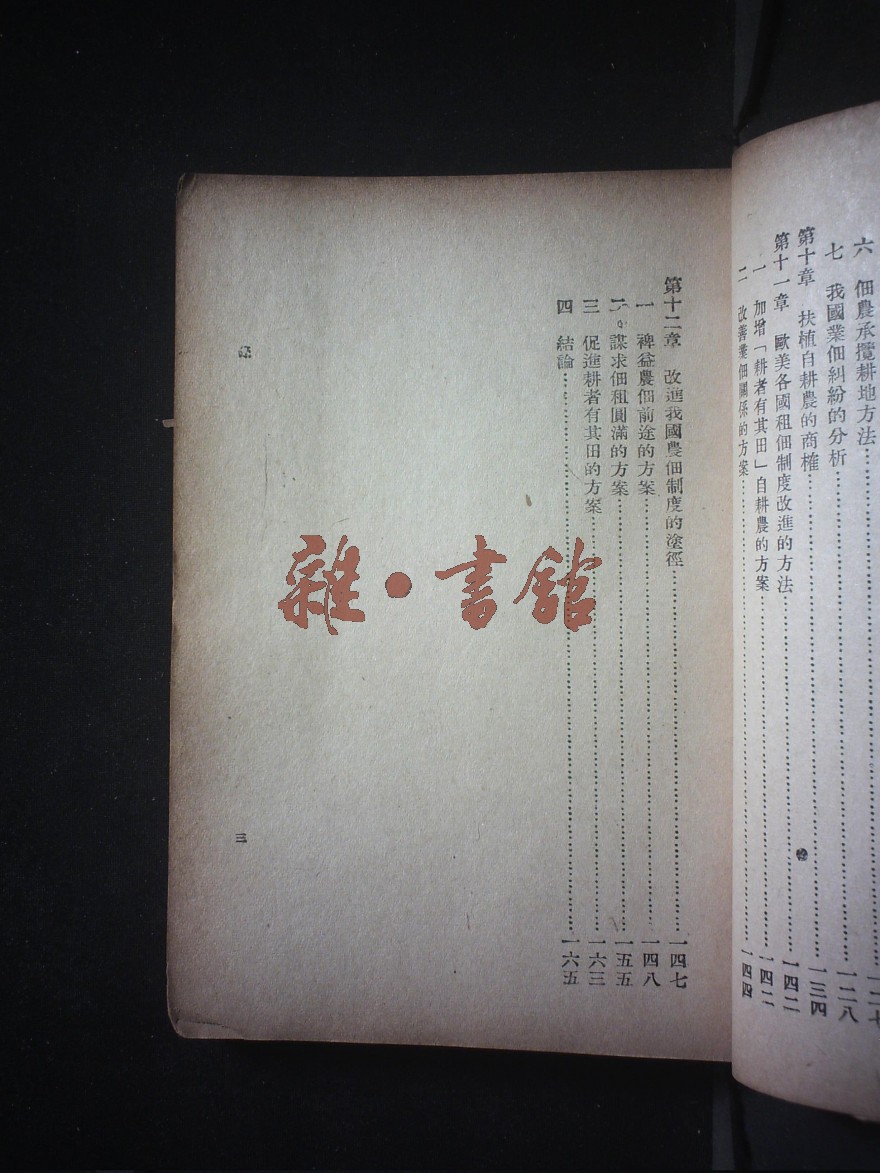 六　佃農承攬耕地方法……一二七
七　我國業佃糾紛的分析……一二八
第十章　扶植自耕農的商榷……一三四
第十一章　歐美各國租佃制度改進的方法……一四二
一　加增「耕者有其田」自耕農的方案……一四二
二　改善業佃關係的方案……一四四
第十二章　改進我國農佃制度的塗徑……一四七
一　裨益農佃前途的方案……一四八
二　謀求佃租圓滿的方案……一五五
三　促進耕者有其田的方案……一六三
四　結論……一六五
三
雜·書館